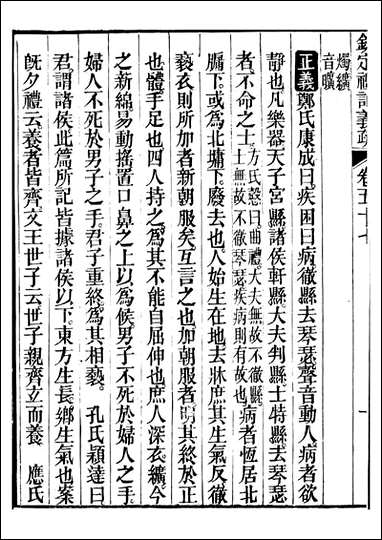 欽定禮記義疏 卷五十七 一
燭纊
音曠
正義鄭氏康成曰疾困曰病徹縣去琴瑟聲音動人病者欲
靜也凡樂器天子宮縣諸侯軒縣大夫判縣士特縣去琴瑟
者不命之士方氏慤曰曲禮大夫無故不徹縣士無故不徹琴瑟疾病則有故也病者恆居北
牖下或為北墉下廢去也人始生在地去牀庶其生氣反徹
褻衣則所加者新朝服矣互言之也加朝服者明其終於正
也體手足也四人持之為其不能自屈伸也庶人深衣纊今
之新綿易動搖置口鼻之上以為候男子不死於婦人之手
婦人不死於男子之手君子重終為其相褻 孔氏穎達曰
君謂諸侯此篇所記皆據諸侯以下東方生長鄉生氣也案
旣夕禮云養者皆齊文王世子云世子親齊立而養 應氏